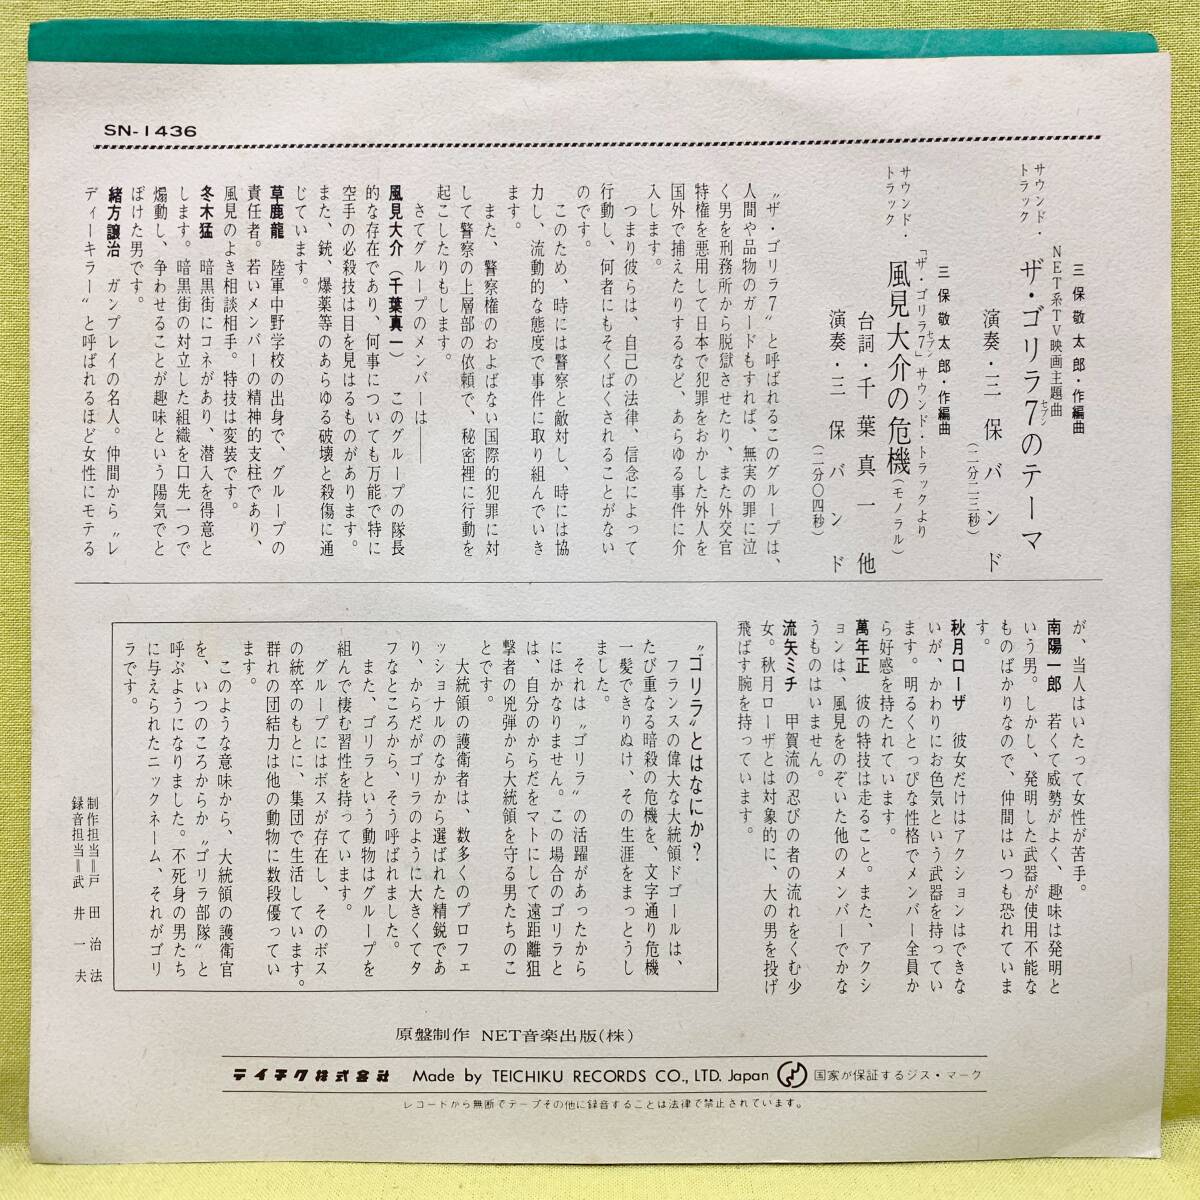 SN-1436
サウンド・トラック
NET系TV映画主題曲
ザ・ゴリラ7のテーマ
セブン
(二分二三秒)
三保敬太郎・作編曲
演奏・三保バンド
サウンド・トラック
「ザ・ゴリラ7」サウンド・トラックより
セブン
風見大介の危機(モノラル)
(二分〇四秒)
三保敬太郎・作編曲
台詞・千葉真一他
演奏・三保バンド
“ザ・ゴリラ7”と呼ばれるこのグループは、
人間や品物のガードもすれば、無実の罪に泣
く男を刑務所から脱獄させたり、また外交官
特権を悪用して日本で犯罪をおかした外人を
国外で捕えたりするなど、あらゆる事件に介
入します。
つまり彼らは、自己の法律、信念によって
行動し、何者にもそくばくされることがない
のです。
このため、時には警察と敵対し、時には協
力し、流動的な態度で事件に取り組んでいき
ます。
また、警察権のおよばない国際的犯罪に対
して警察の上層部の依頼で、秘密裡に行動を
起こしたりもします。
さてグループのメンバーは——
風見大介(千葉真一) このグループの隊長
的な存在であり、何事についても万能で特に
空手の必殺技は目を見はるものがあります。
また、銃、爆薬等のあらゆる破壊と殺傷に通
じています。
草鹿龍 陸軍中野学校の出身で、グループの
責任者。若いメンバーの精神的支柱であり、
風見のよき相談相手。特技は変装です。
冬木猛 暗黒街にコネがあり、潜入を得意と
します。暗黒街の対立した組織を口先一つで
煽動し、争わせることが趣味という陽気でと
ぼけた男です。
緒方譲治 ガンプレイの名人。仲間から“レ
ディーキラー”と呼ばれるほど女性にモテる
が、当人はいたって女性が苦手。
南陽一郎 若くて威勢がよく、趣味は発明と
いう男。しかし、発明した武器が使用不能な
ものばかりなので、仲間はいつも恐れていま
す。
秋月ローザ 彼女だけはアクションはできな
いが、かわりにお色気という武器を持ってい
ます。明るくとっぴな性格でメンバー全員か
ら好感を持たれています。
萬年正 彼の特技は走ること。また、アクシ
ョンは、風見をのぞいた他のメンバーでかな
うものはいません。
流矢ミチ 甲賀流の忍びの者の流れをくむ少
女。秋月ローザとは対象的に、大の男を投げ
飛ばす腕を持っています。
“ゴリラ”とはなにか?
フランスの偉大な大統領ドゴールは、
たび重なる暗殺の危機を、文字通り危機
一髪できりぬけ、その生涯をまっとうし
ました。
それは“ゴリラ”の活躍があったから
にほかなりません。この場合のゴリラと
は、自分のからだをマトにして遠距離狙
撃者の兇弾から大統領を守る男たちのこ
とです。
大統領の護衛者は、数多くのプロフェ
ッショナルのなかから選ばれた精鋭であ
り、からだがゴリラのように大きくてタ
フなところから、そう呼ばれました。
また、ゴリラという動物はグループを
組んで棲む習性を持っています。
グループにはボスが存在し、そのボス
の統卒のもとに、集団で生活しています。
群れの団結力は他の動物に数段優ってい
ます。
このような意味から、大統領の護衛官
を、いつのころからか“ゴリラ部隊”と
呼ぶようになりました。不死身の男たち
に与えられたニックネーム、それがゴリ
ラです。
制作担当=戸田治法
録音担当=武井一夫
原盤制作 NET音楽出版(株)
テイチク株式会社 Made by TEICHIKU RECORDS CO., LTD. Japan 国家が保証するジス・マーク
レコードから無断でテープその他に録音することは法律で禁止されています。